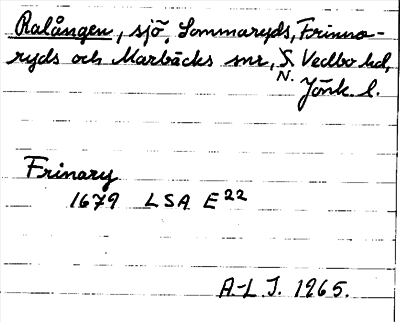 Ralången, sjö, Lommaryds, Frinna-
ryds och Marbäcks snr, S. Vedbo hd,
N.
Jönk. l.
Frinary
1679 LSA E22
A-L J. 1965.